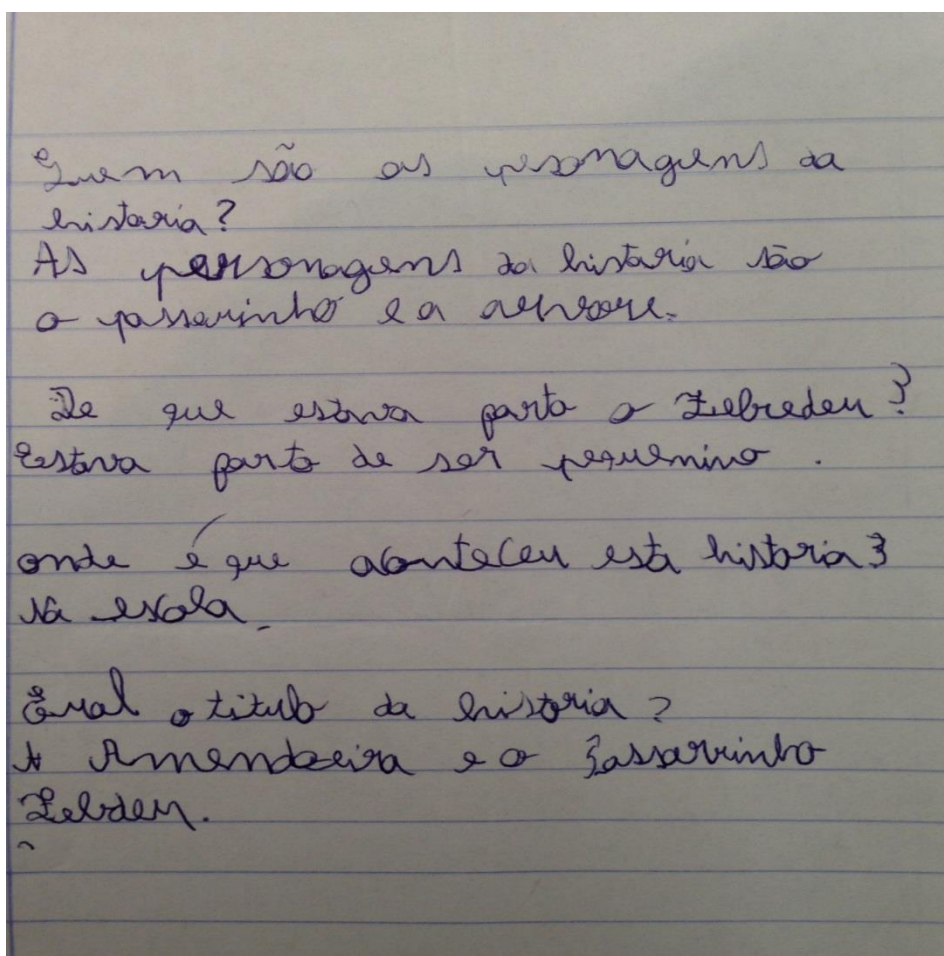 Quem são os pesonagens da
histaria?
As personagens da histaria são
o passarinho e a
De que estava farto o Zebedeu?
Estava farto de ser pequenino.
onde é que aconteceu está historia?
Na escola.
Qual o titulo da historia?
A Amendoeira e o Passarinho